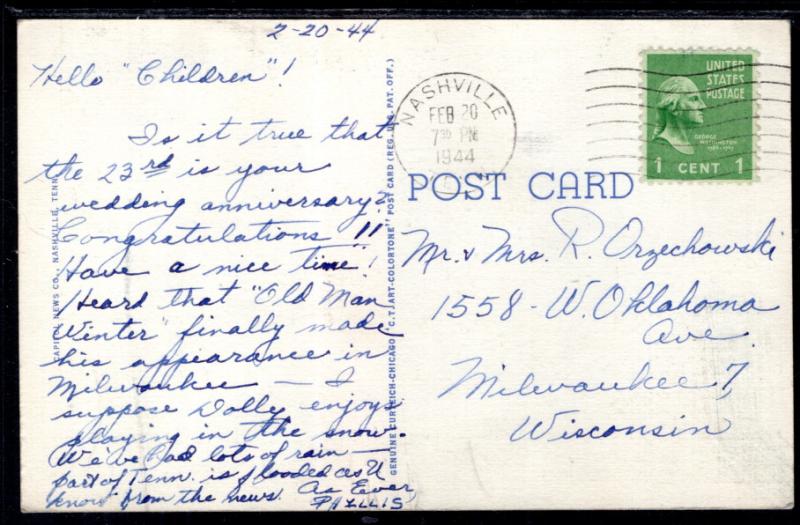 2-20-44
Hello "Children"!
Is it true that
the 23rd is your
wedding anniversary?
Congratulations!!
Have a nice time!
Heard that "Old Man
Winter" finally made
his appearance in
Milwaukee — I
suppose Dolly enjoys
playing in the snow.
We've had lots of rain —
part of Tenn. is flooded as U
know from the news. As Ever,
PHYLLIS
CAPITOL NEWS CO., NASHVILLE, TENN.
GENUINE CURTEICH-CHICAGO "C.T. ART-COLORTONE" POST CARD (REG. U.S. PAT. OFF.)
NASHVILLE
FEB 20
7 30 PM
1944
UNITED
STATES
POSTAGE
GEORGE
WASHINGTON
1789-1797
1 CENT 1
POST CARD
Mr. & Mrs. R. Orzechowski
1558 - W. Oklahoma
Ave.
Milwaukee 7,
Wisconsin